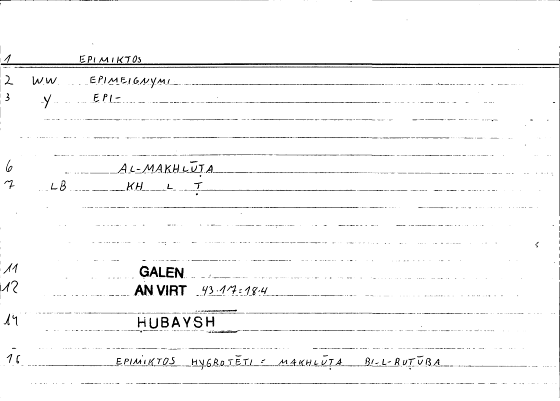 1 EPIMIKTOS
2 WW EPIMEIGNYMI
3 Y EPI-
6 AL-MAKHLŪṬA
7 LB KH L Ṭ
11 GALEN
12 AN VIRT 43.17=18.4
14 HUBAYSH
15 EPIMIKTOS HYGROTĒTI = MAKHLŪṬA BI-L-RUṬŪBA